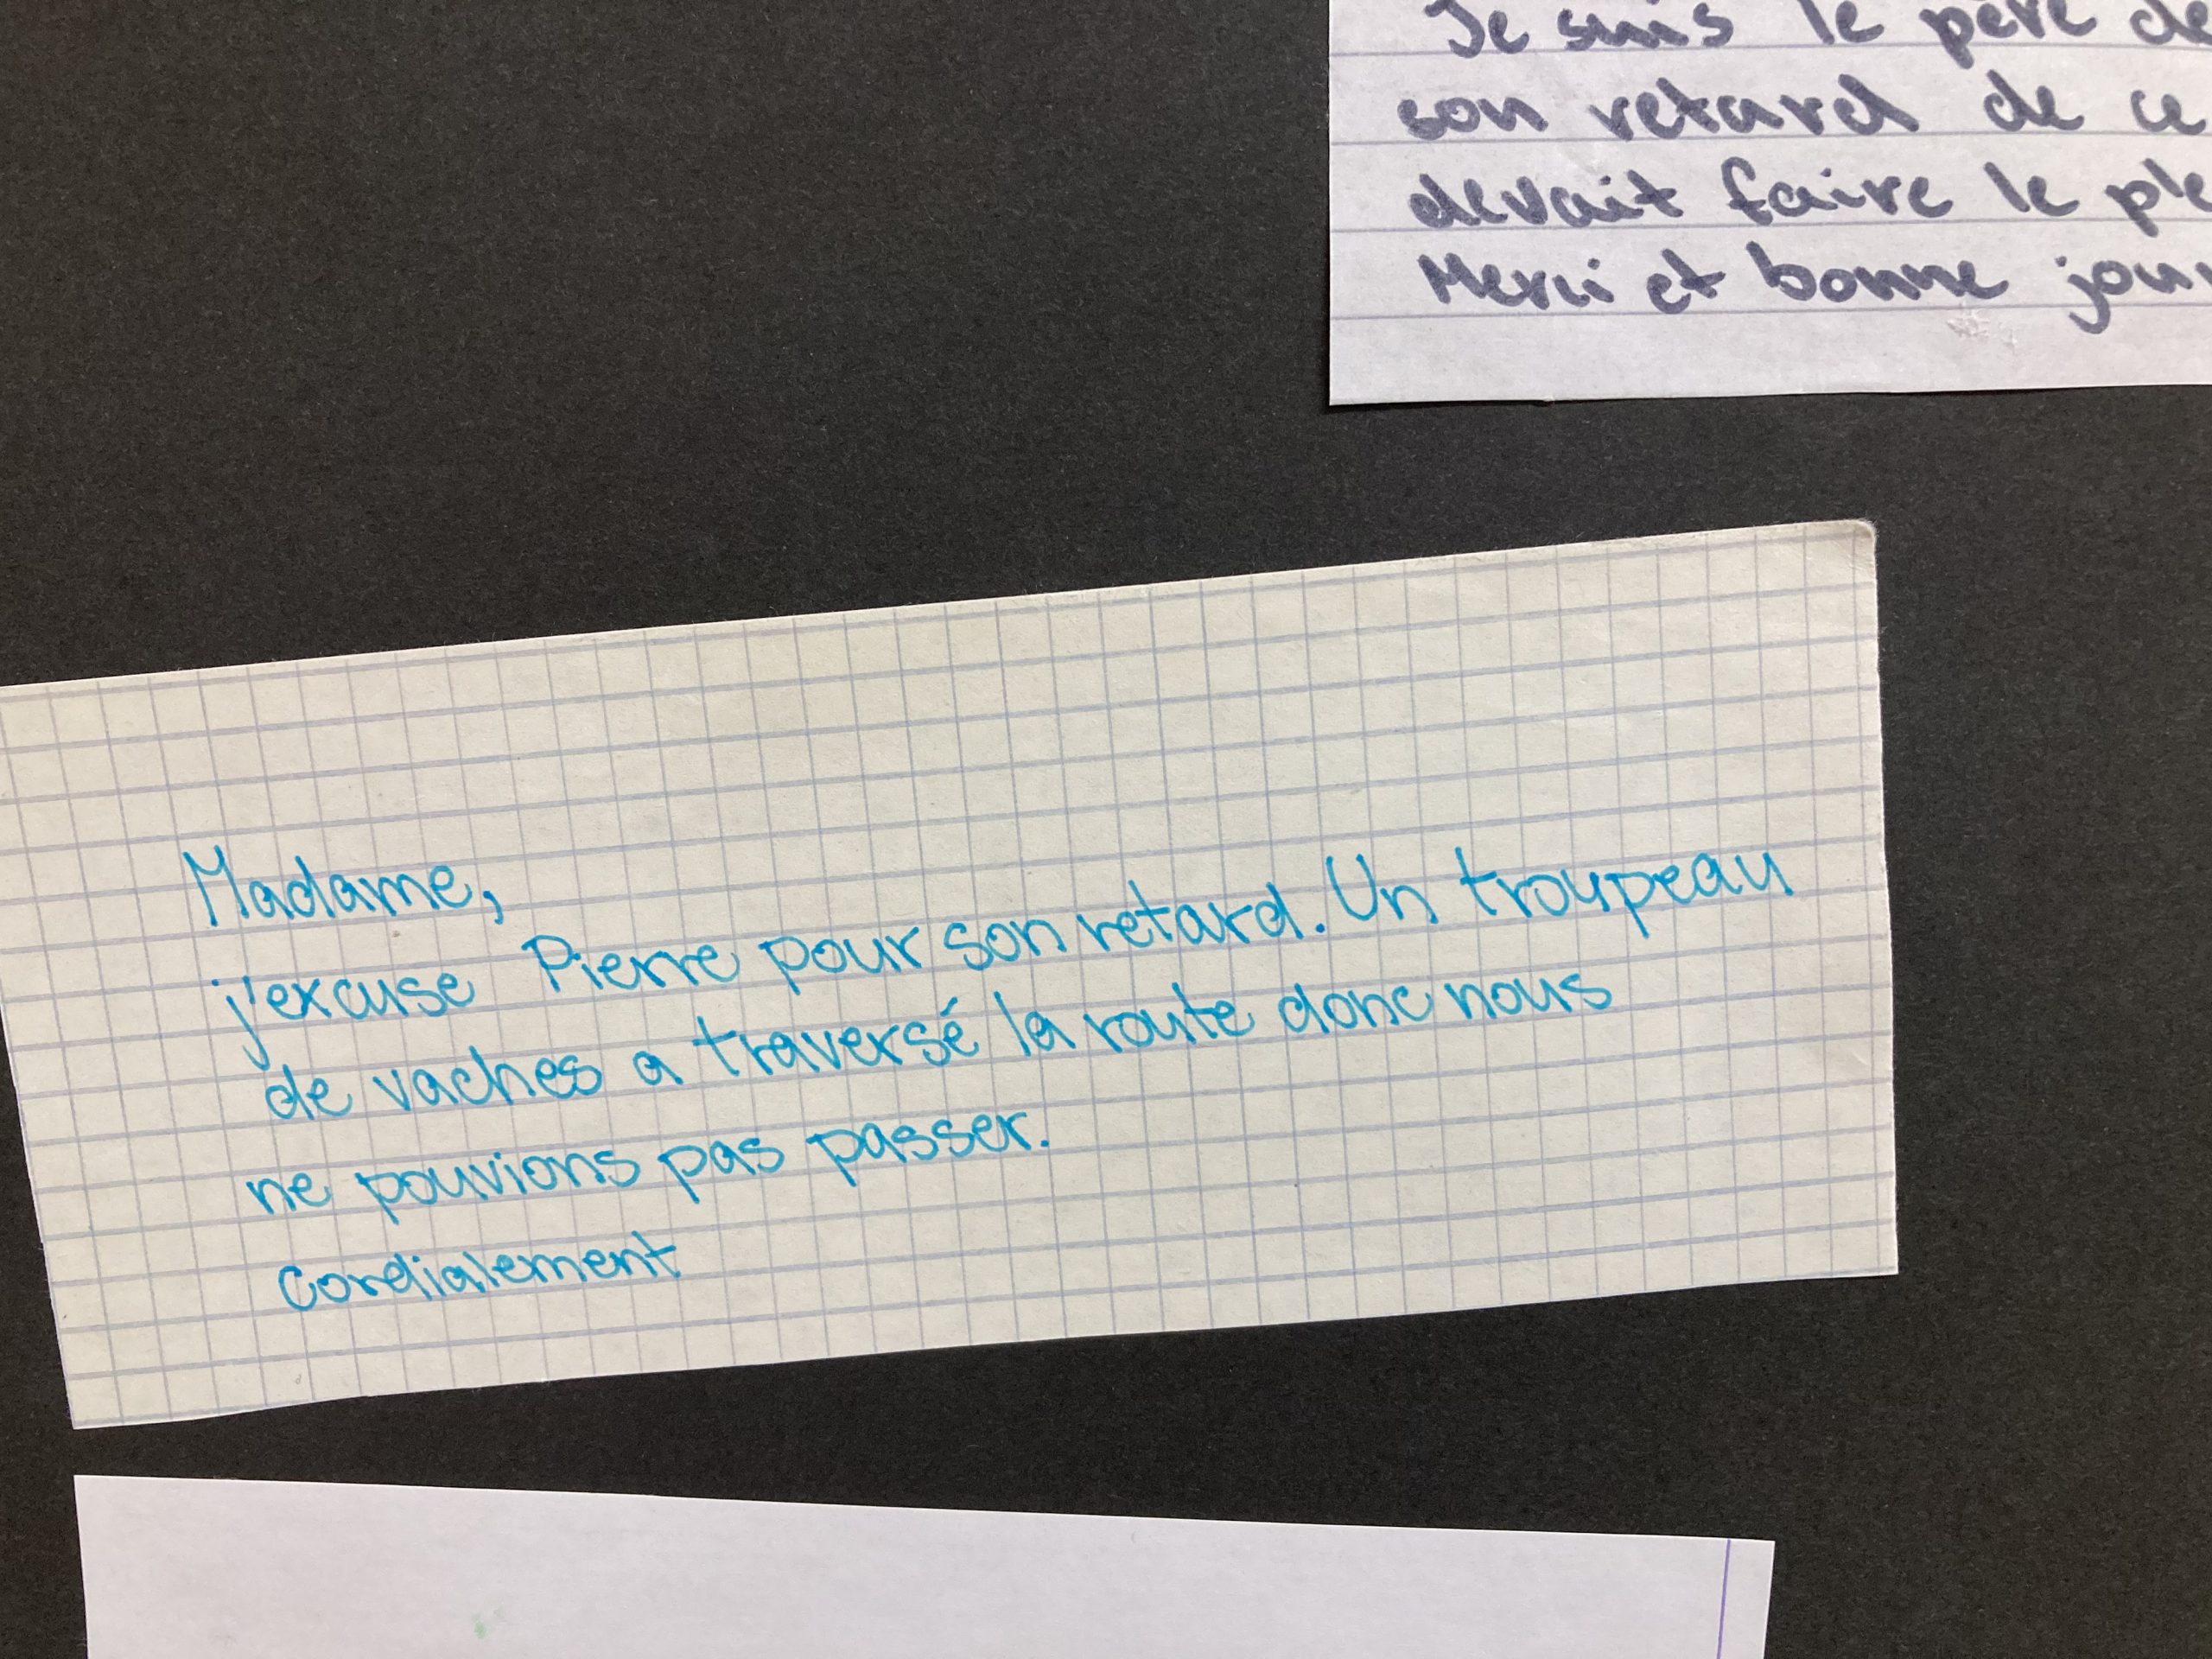 Je suis le père de
son retard de ce
devait faire le
Merci et bonne
Madame,
j'excuse Pierre pour son retard. Un troupeau
de vaches a traversé la route donc nous
ne pouvions pas passer.
Cordialement